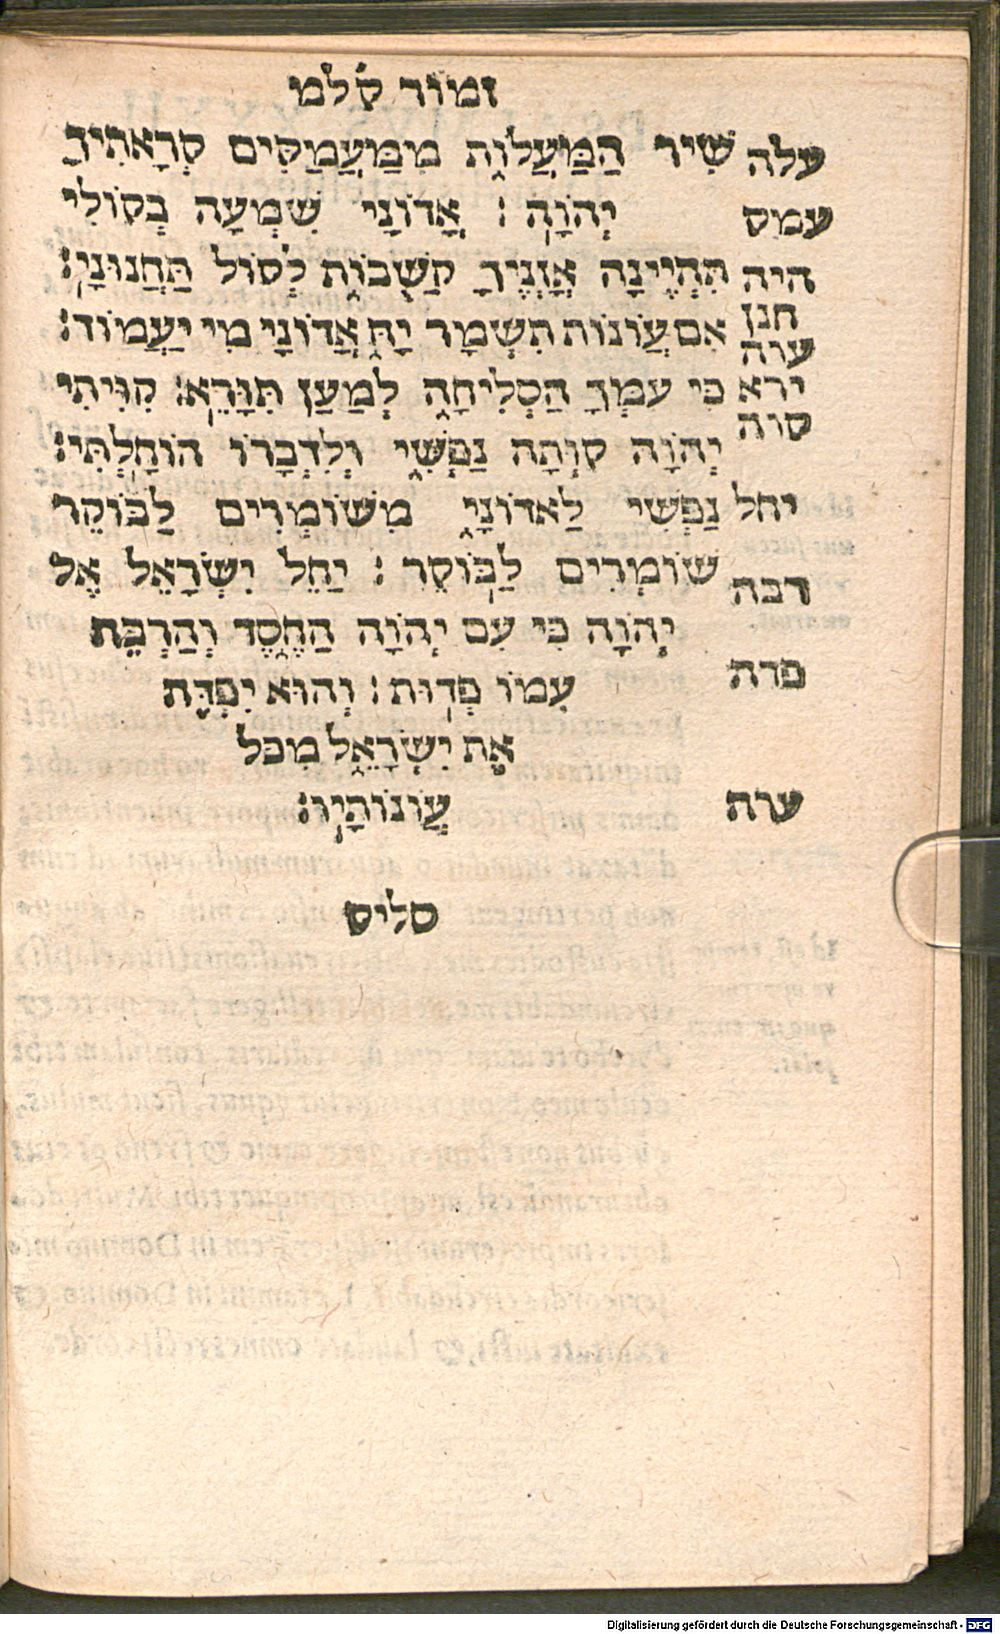 זמור קלמ
עלה שִׁיר הַמַּעֲלוֹת מִמַּעֲמַקִּים קְרָאתִיךָ
עמס יְהֹוָה : אֲדוֹנָי שִׁמְעָה בְקוֹלִי
היה תִּהְיֶינָה אָזְנֶיךָ קַשֻּׁבוֹת לְסוֹל תַּחֲנוּנָי:
חנן
עוה אִם עֲוֹנוֹת תִּשְׁמָר יָהּ אֲדוֹנָי מִי יַעֲמוֹד:
ירא כִּי עִמְּךָ הַסְּלִיחָה לְמַעַן תִּוָּרֵא: קִוִּיתִי
סוה יְהֹוָה קִוְּתָה נַפְשִׁי וְלִדְבָרוֹ הוֹחָלְתִּי:
יחל נַפְשִׁי לַאדוֹנָי מִשּׁוֹמְרִים לַבּוֹקֶר
שׁוֹמְרִים לַבּוֹקֶר : יַחֵל יִשְׂרָאֵל אֶל
רבה
יְהֹוָה כִּי עִם יְהֹוָה הַחֶסֶד וְהַרְבֵּה
פרה עִמּוֹ פְדוּת : וְהוּא יִפְדֶּה
אֶת יִשְׂרָאֵל מִכֹּל
ערה עֲוֹנוֹתָיו:
סליס
Digitalisierung gefördert durch die Deutsche Forschungsgemeinschaft - DFG